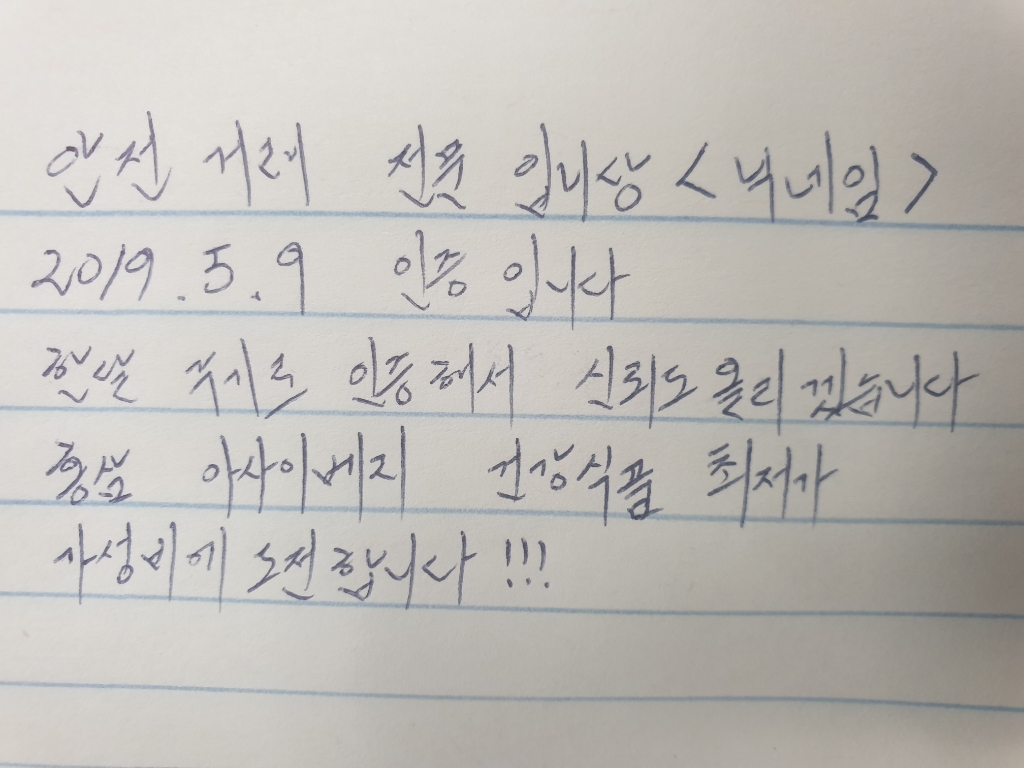 안전 거래 전문 입니상 <닉네임>
2019.5.9 인증 입니다
한달 주기로 인증해서 신뢰도 올리겠습니다
홍삼 아사이베리 건강식품 최저가
가성비에 도전합니다!!!